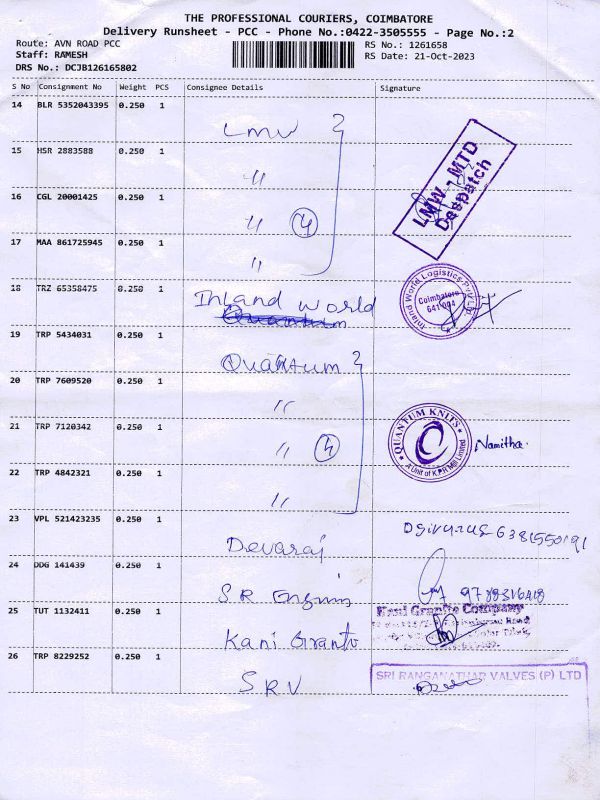 THE PROFESSIONAL COURIERS, COIMBATORE
Delivery Runsheet - PCC - Phone No.:0422-3505555 - Page No.:2
Route: AVN ROAD PCC
Staff: RAMESH
DRS No.: DCJB126165802
RS No.: 1261658
RS Date: 21-Oct-2023
S No Consignment No Weight PCS Consignee Details Signature
14 BLR 5352043395 0.250 1 LMW
15 HSR 2883588 0.250 1 "
16 CGL 20001425 0.250 1 " 4
17 MAA 861725945 0.250 1 "
LMW - MTD
Despatch
18 TRZ 65358475 0.250 1 Inland World
Quantum
Inland World Logistics Pvt Ltd
Coimbatore
641 004
19 TRP 5434031 0.250 1 Quantum
20 TRP 7609520 0.250 1 "
21 TRP 7120342 0.250 1 " 4
QUANTUM KNITS
A Unit of K.P.R Mill Limited
Namitha.
22 TRP 4842321 0.250 1 "
23 VPL 521423235 0.250 1 Devaraj
24 DDG 141439 0.250 1 S.R Engnin
25 TUT 1132411 0.250 1 Kani Granto
Kani Granite Company
26 TRP 8229252 0.250 1 SRV
SRI RANGANATHAR VALVES (P) LTD